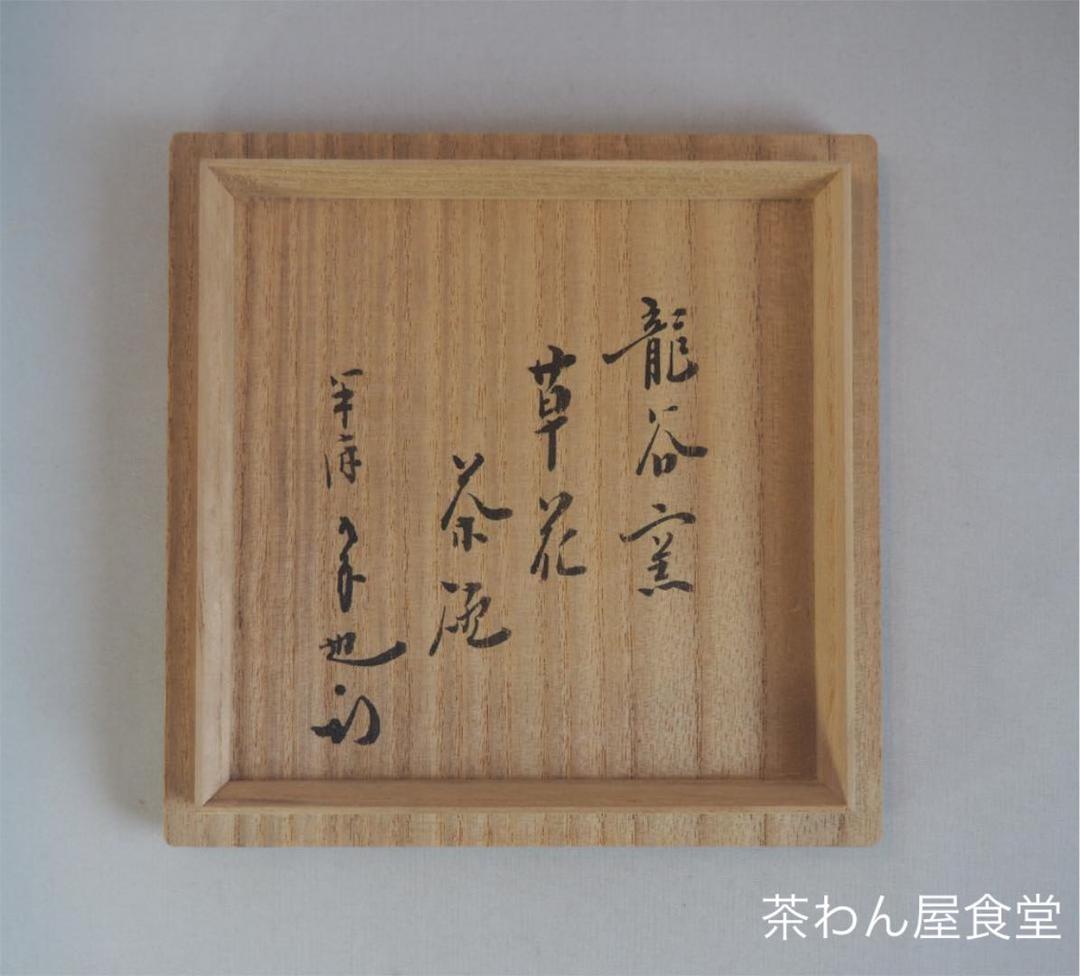 龍谷窯
草花
茶碗
半床
也
茶わん屋食堂